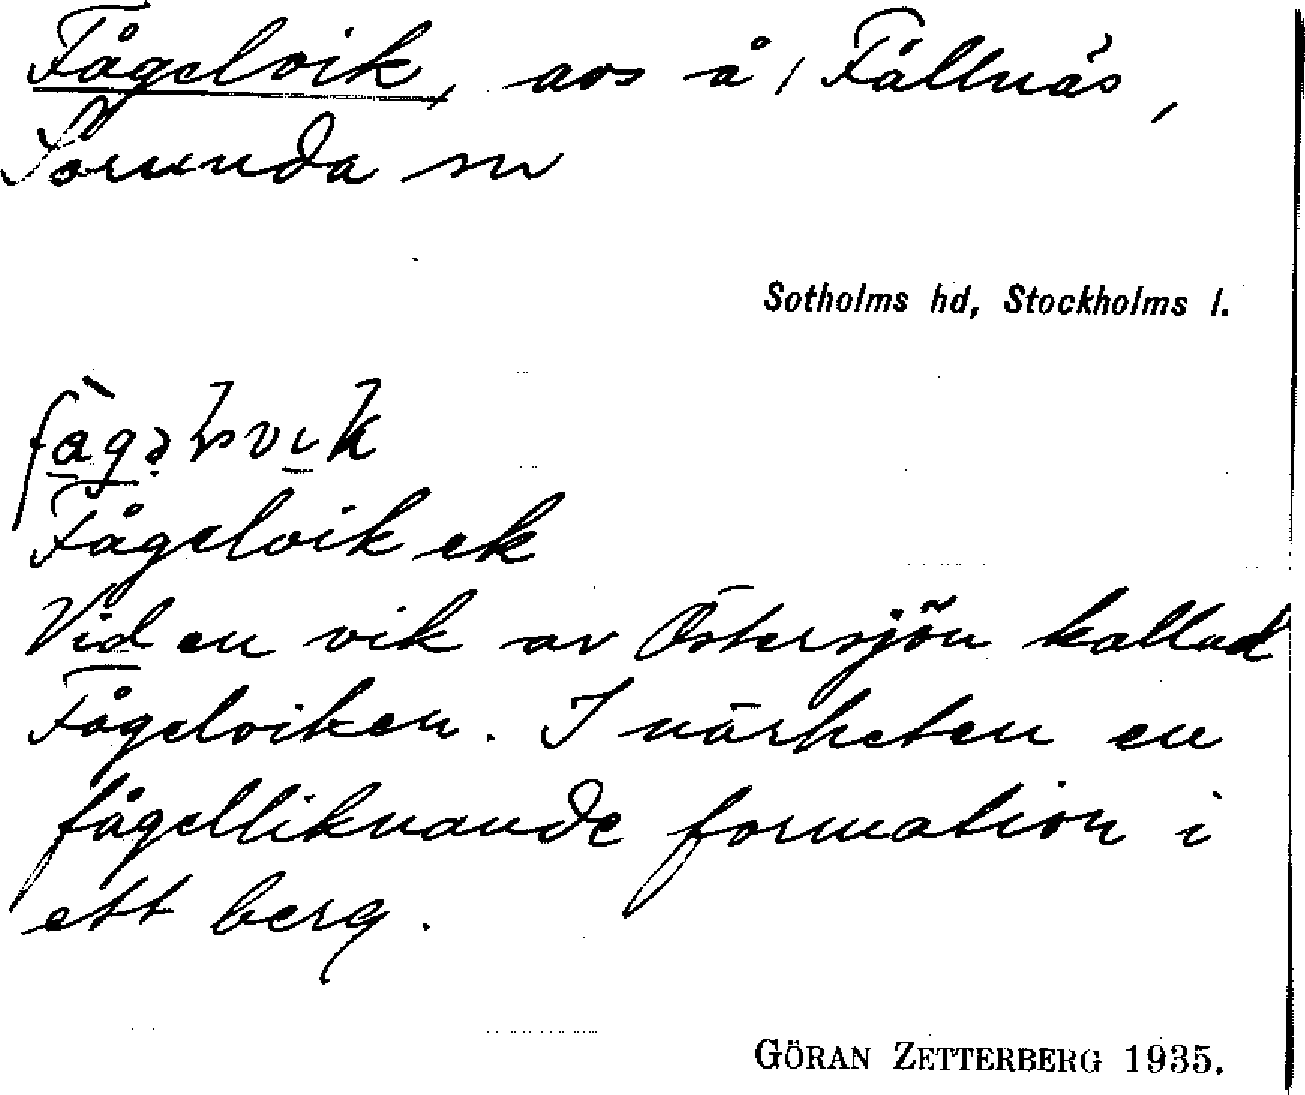 Fågelvik, avs å, Fållnäs,
Sorunda sn
Sotholms hd, Stockholms l.
Fågelvik ek
Vid en vik av Östersjön kallad
Fågelviken. I närheten en
fågelliknande formation i
ett berg.
GÖRAN ZETTERBERG 1935.